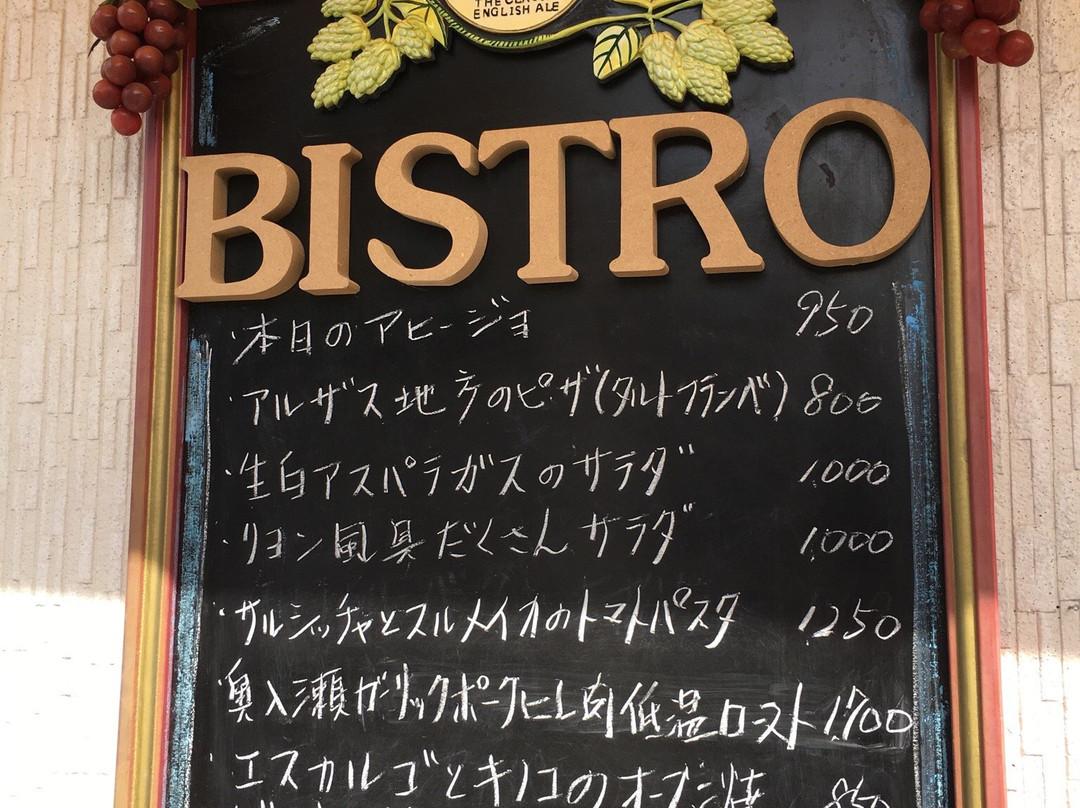 ENGLISH ALE
BISTRO
・本日のアヒージョ 950
・アルザス地方のピザ(タルトフランベ) 800
・生白アスパラガスのサラダ 1,000
・リヨン風具だくさんサラダ 1,000
・サルシッチャとスルメイカのトマトパスタ 1,250
・奥入瀬ガーリックポークヒレ肉低温ロースト 1,700
・エスカルゴとキノコのオーブン焼 850